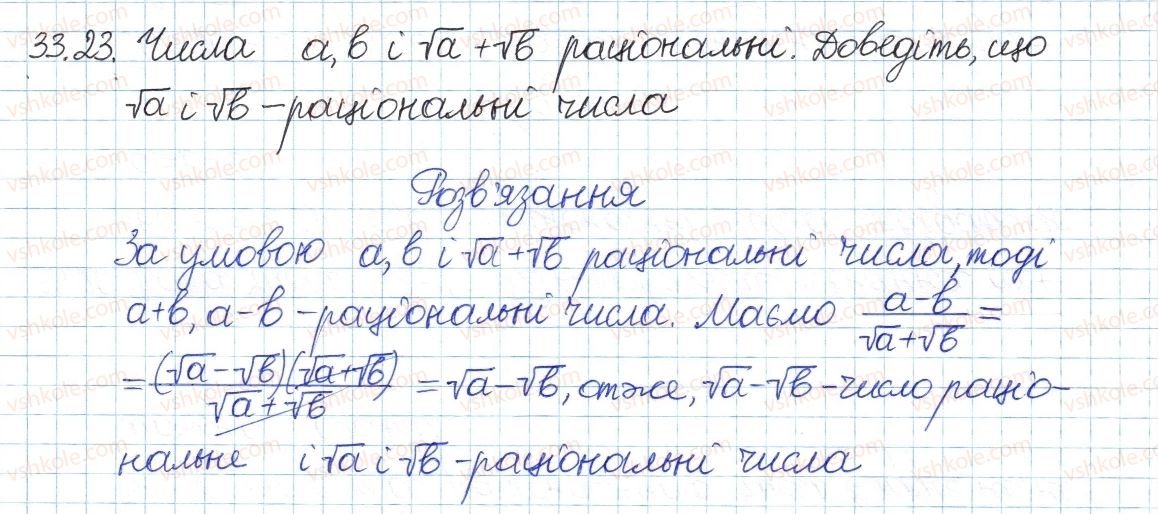 33.23. Числа a, b і √a + √b раціональні. Доведіть, що
√a і √b – раціональні числа
Розв'язання
За умовою a, b і √a + √b раціональні числа, тоді
a+b, a-b – раціональні числа. Маємо (a-b)/(√a+√b) =
= (√a - √b)(√a + √b)/(√a + √b) = √a - √b, отже, √a - √b – число раціо-
нальне і √a і √b – раціональні числа